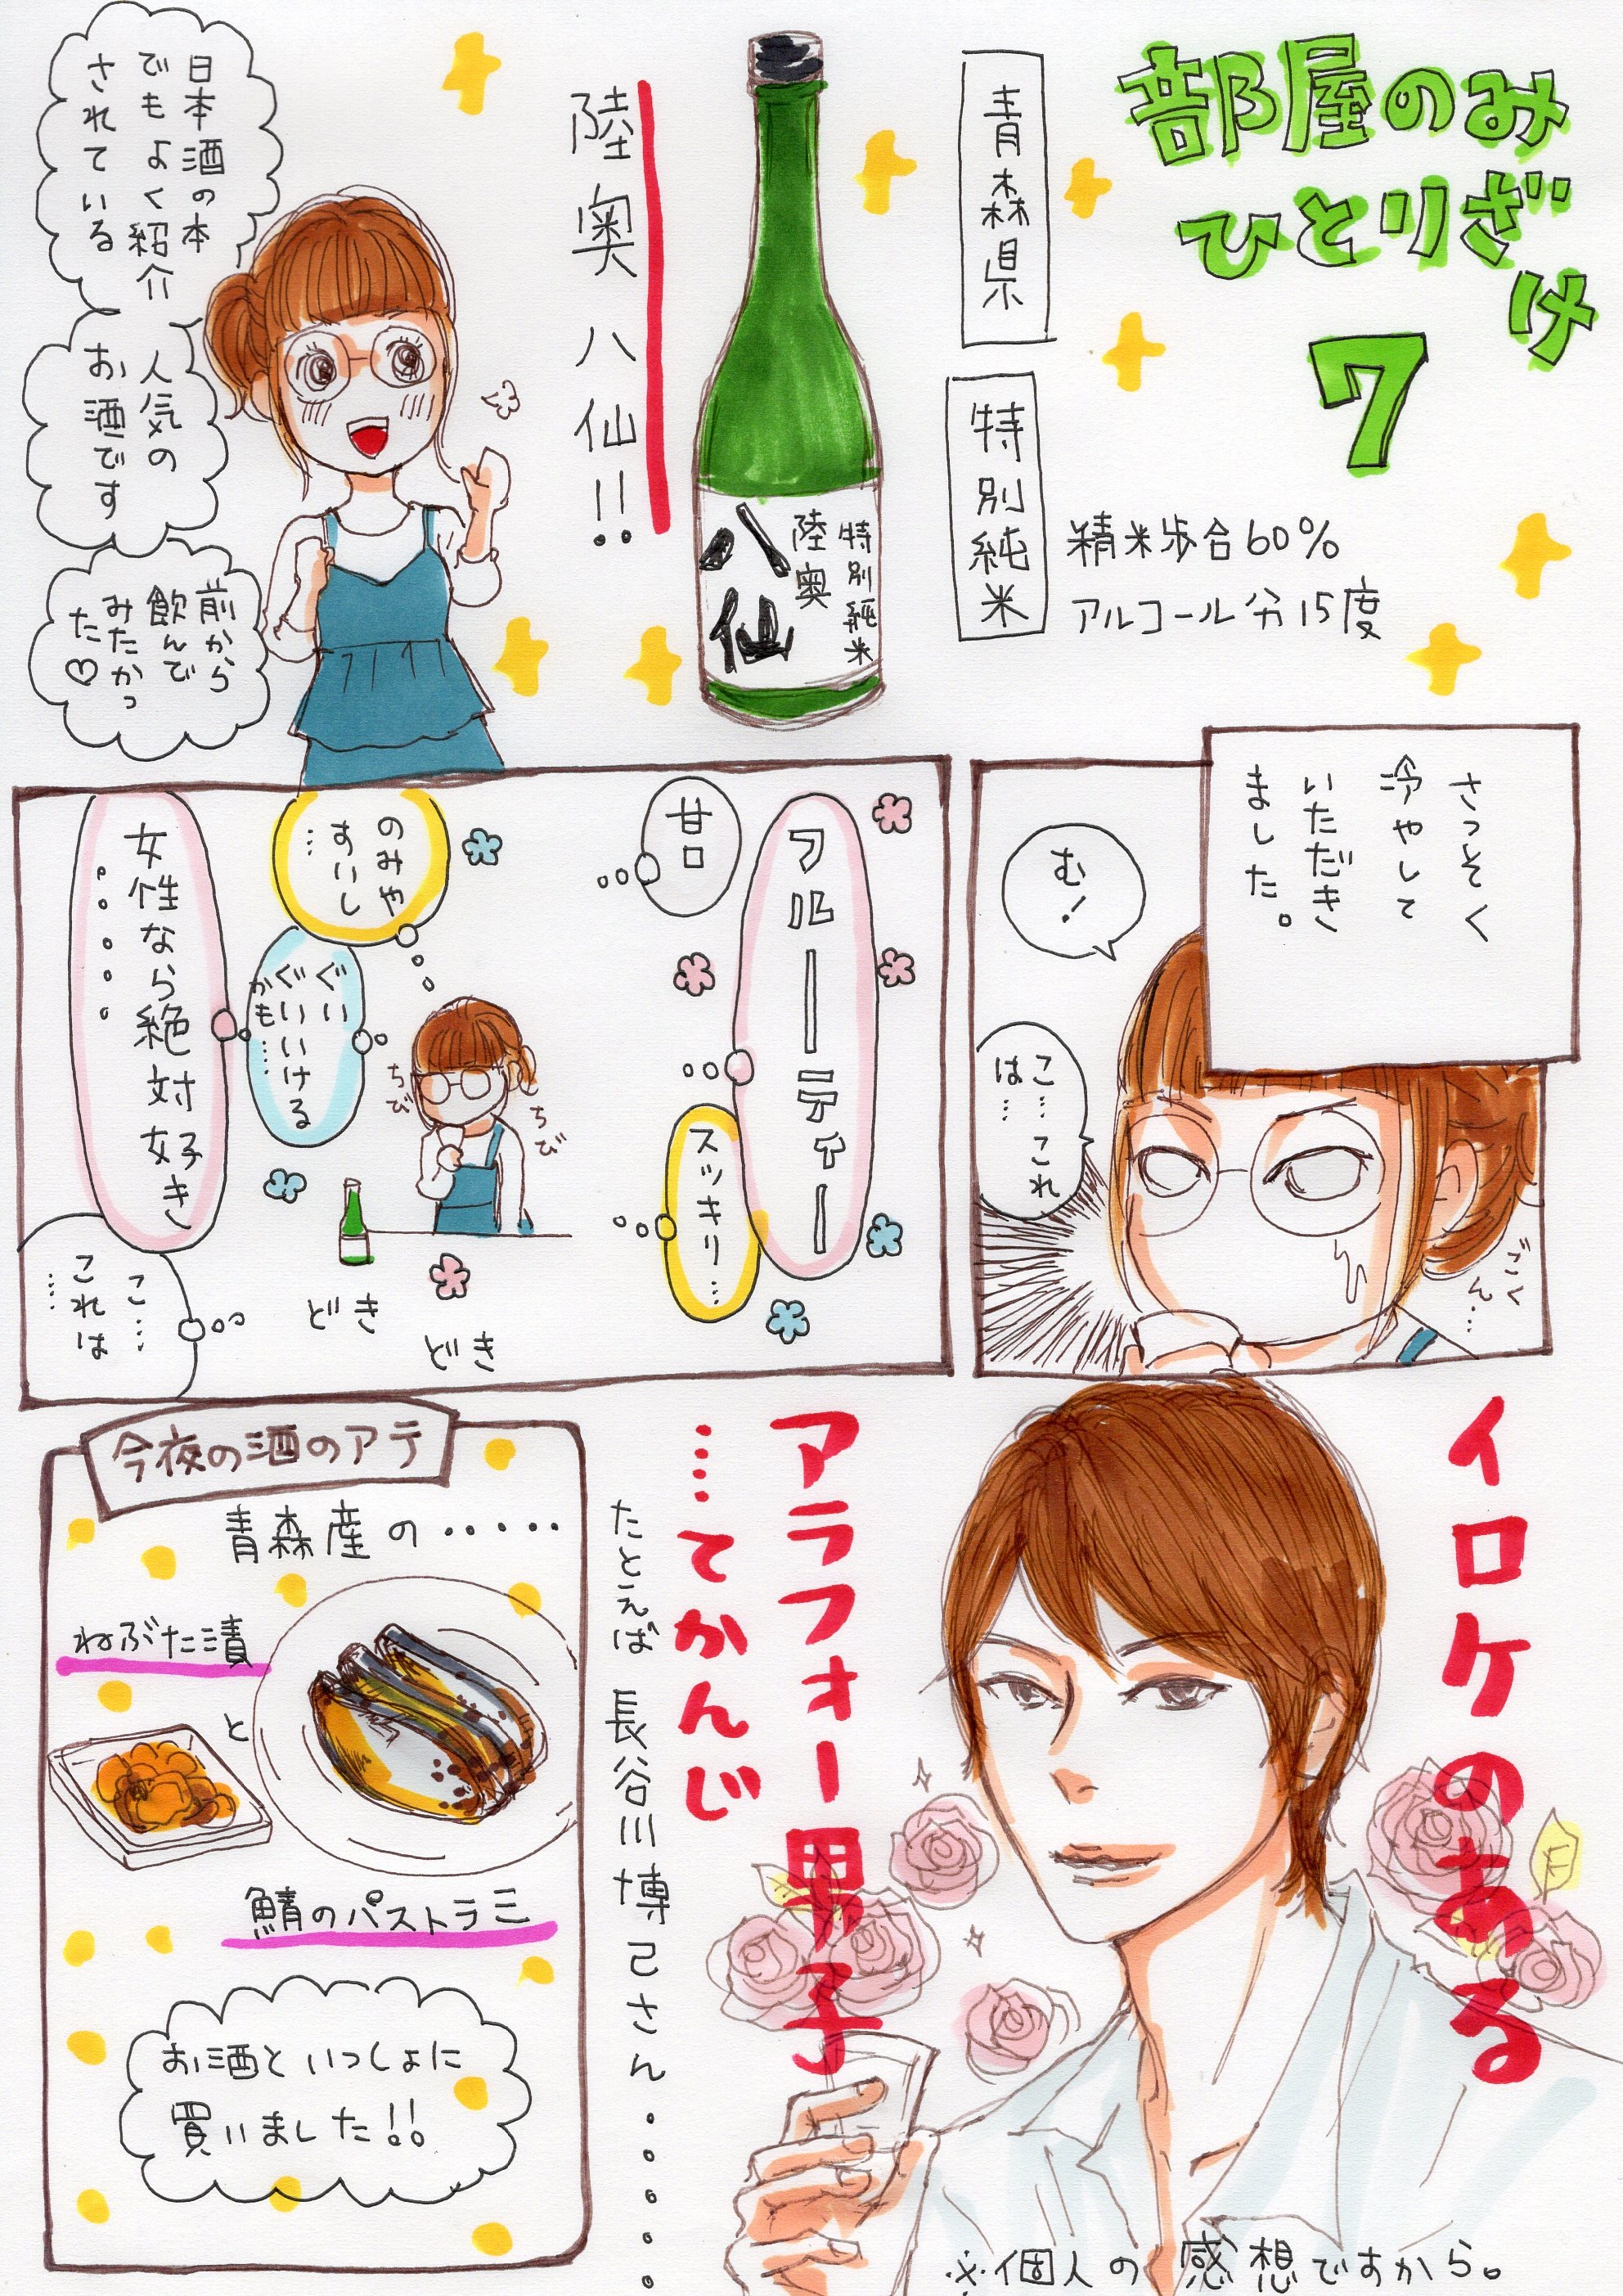 部屋のみ
ひとりざけ
7
青森県
特別純米
精米歩合60%
アルコール分15度
特別純米
陸奥
八仙
陸奥八仙!!
日本酒の本
でもよく紹介
されている
人気の
お酒です
前から
飲んで
みたかっ
た♡
さっそく
冷やして
いただき
ました。
む!
こ…これ
は…
ごく
ん…
フルーーティー
甘口
スッキリ…
のみや
すいし
…
ぐい
ぐいいける
かも…
女性なら絶対好き
・・・・・
ちび
ちび
どき
どき
こ…
これは
…
イロケのある
アラフォー男子
…てかんじ
たとえば 長谷川博己さん・・・・・
※個人の感想ですから。
今夜の酒のアテ
青森産の・・・・・
ねぶた漬
と
鯖のパストラミ
お酒といっしょに
買いました!!